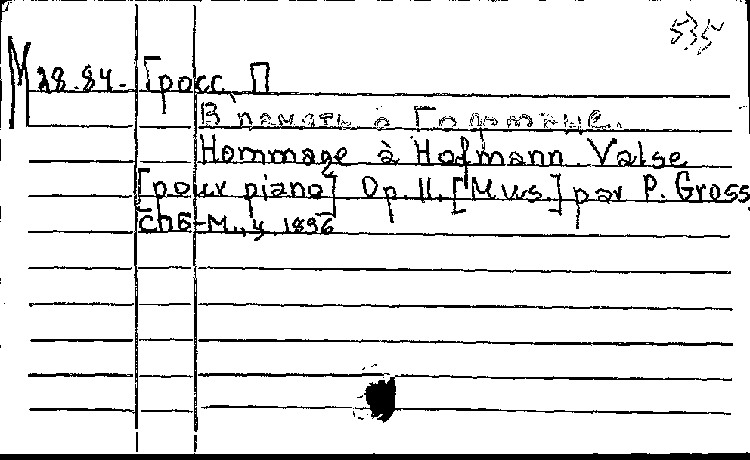 535
М 28.84. Гросс, П
В память о Гофмане.
Hommage à Hofmann. Valse
[pour piano] Op. 11. [Mus.] par P. Gross
СПБ-М., 1896